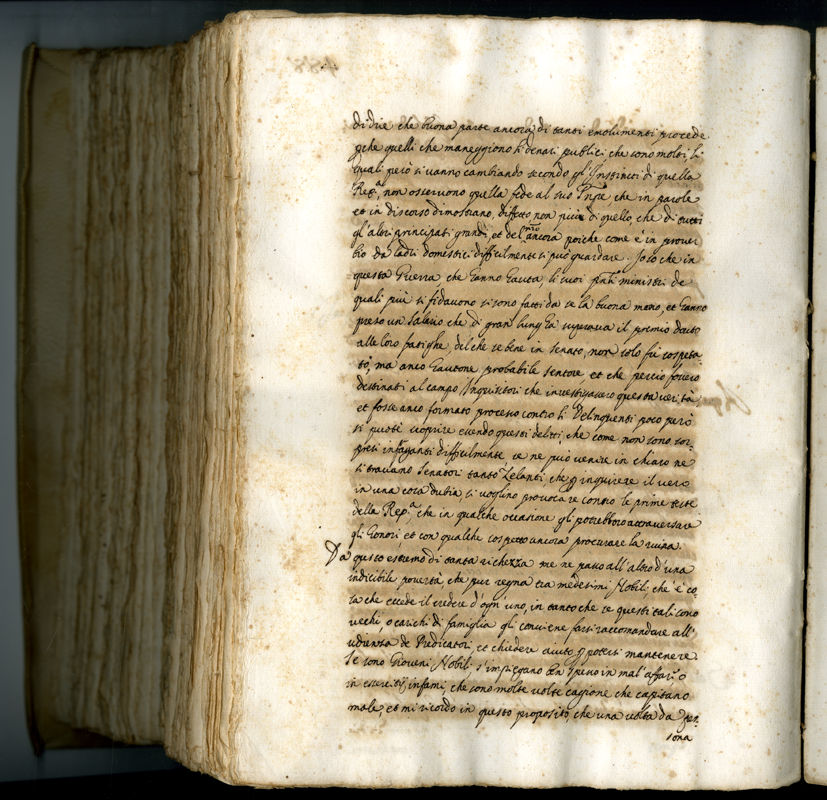 di dire che buona parte ancora di tanti emolumenti procede
che quelli che maneggiono li denari publici che sono molti, li
quali però si vanno cambiando secondo gl'Instituti di quella
Rep.ª non osservono quella fede al suo Prīpe che in parole
et in discorso dimostrano, difetto non più di quello, che di tutti
gl'altri principati grandi, et del nrō ancora poiche come è in prover
bio da ladri domestici difficilmente si può guardare. Io so che in
questa Guerra che hanno hauta, li suoi ministri de
quali più si fidavono si sono fatti da se la buona mano, et hanno
preso un salario che di gran lunga superava il premio dovuto
alle loro fatighe, del che se bene in senato, non solo fù sospeta
to, ma anco hautone probabile sentore et che perciò fosero
destinati al campo Inquisitori che investigassero questa verità
et fosse anco formato processo contro li Delinquenti poco però
si puote scoprire essendo questi delitti, che come non sono sor=
presi infraganti difficilmente se ne può venire in chiaro ne
si trovano Senatori tanto Zelanti, che inquirere il vero
in una cosa dubia si voglino provocare contro le prime teste
della Rep.ª che in qualche occasione gli potrebbono attraversare
gli honori et con qualche sospetto ancora procurare la ruina.
Da questo estremo di tanta richezza me ne passo all'altro d'una
indicibile povertà, che pur regna tra medesimi Nobili che è co
sa che eccede il credere d'ogn'uno, in tanto che se questi tali sono
vechi, o carichi di famiglia gli conviene farsi raccomandare all'
udienza de Predicatori, et chiedere aiuto potersi mantenere.
Se sono Gioveni Nobili s'impiegano ben spesso in mal'affari o
in esercitij infami, che sono molte volte cagione che capitano
male, et mi ricordo in questo proposito che una volta da per
sona